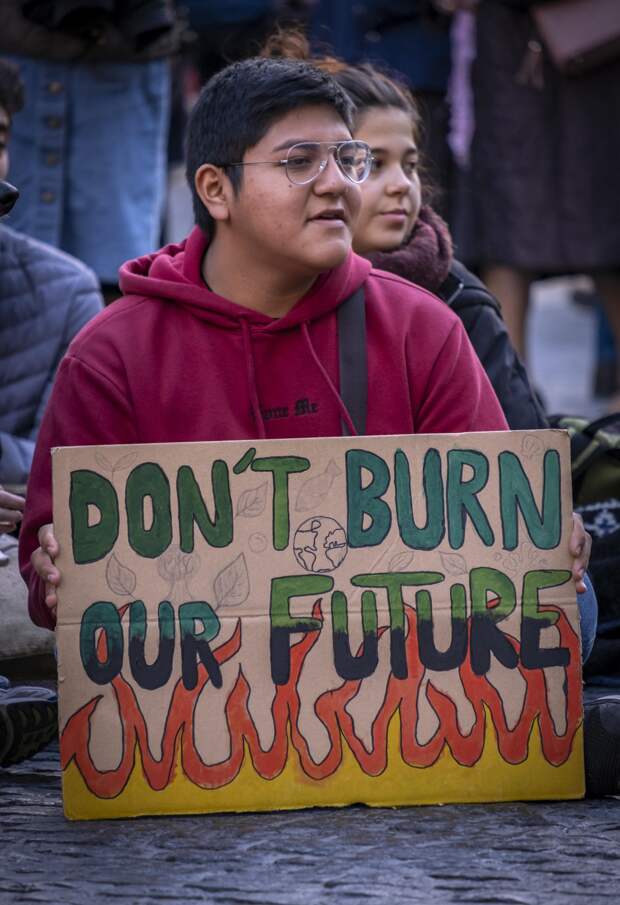 Me
DON'T BURN
OUR FUTURE